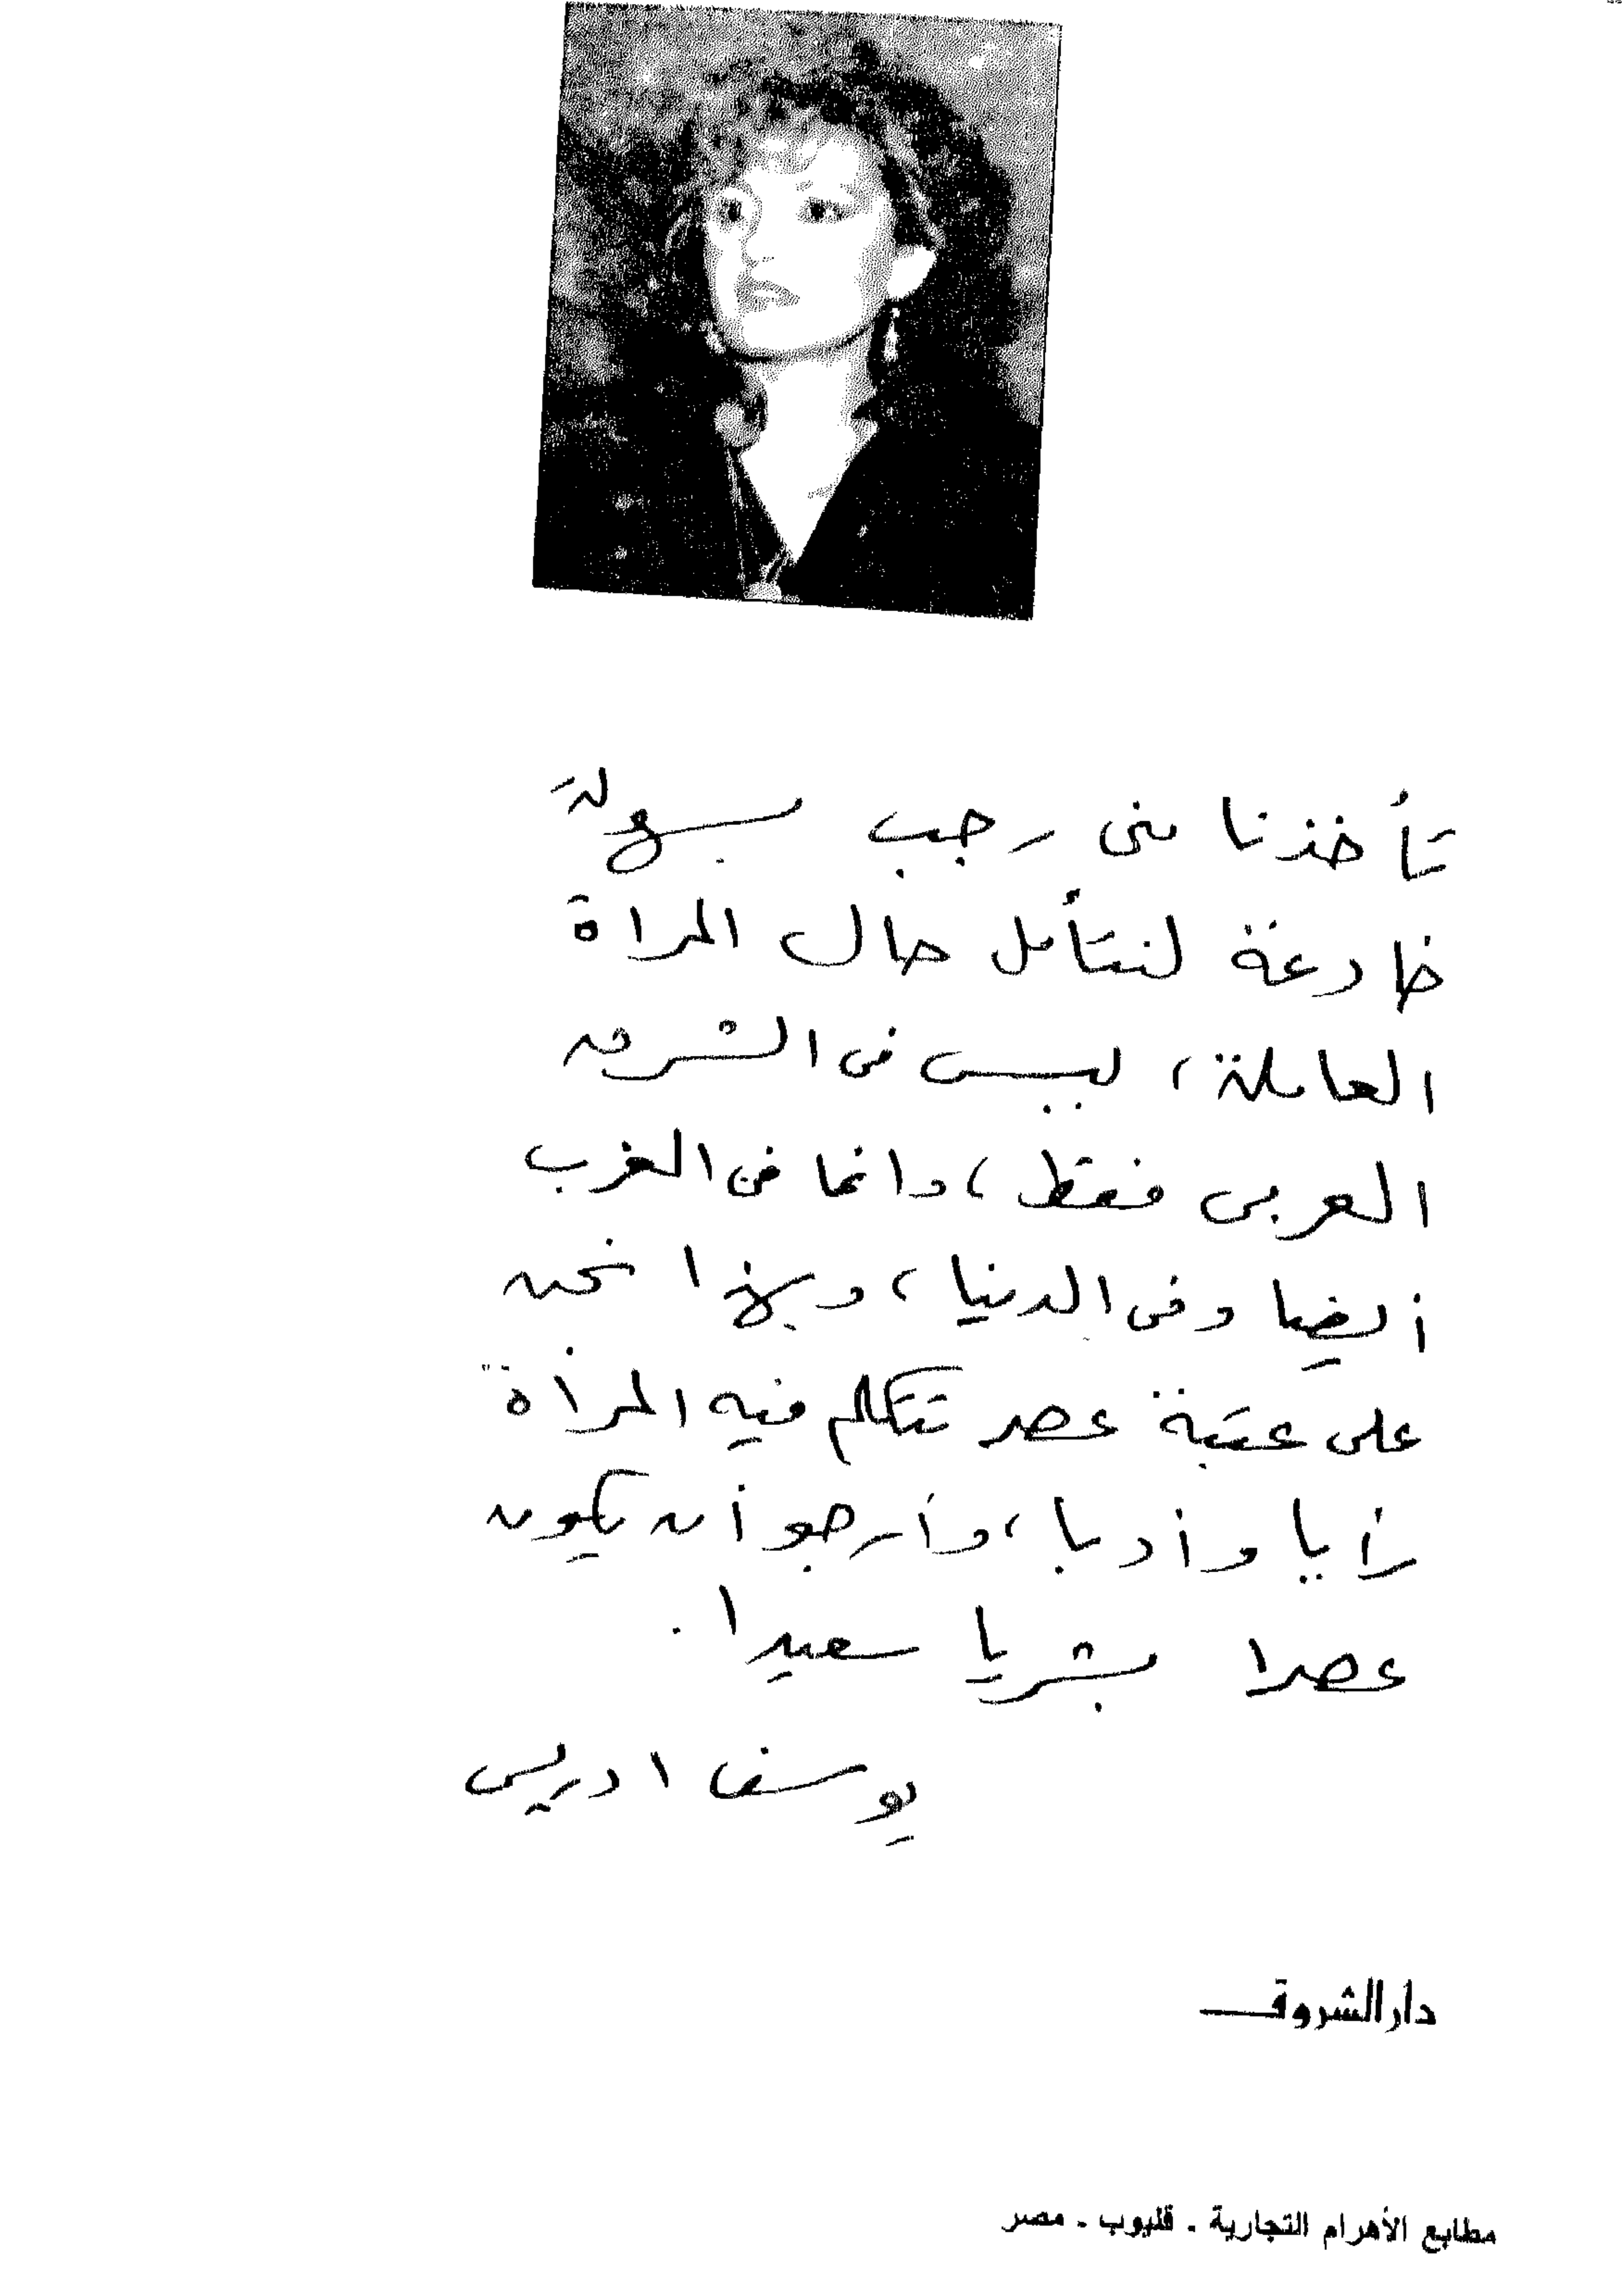 تأخذنا منى رجب بسهولة
خادعة لنتأمل حال المرأة
العاملة، ليس فى الشرق
العربى فقط، وانما فى الغرب
أيضا وفى الدنيا، وبهذا نحن
على عتبة عصر تتكلم فيه المرأة
رأيا وأدبا، وأرجو أن يكون
عصرا بشريا سعيدا.
يوسف ادريس
دار الشروق
مطابع الأهرام التجارية . قليوب . مصر